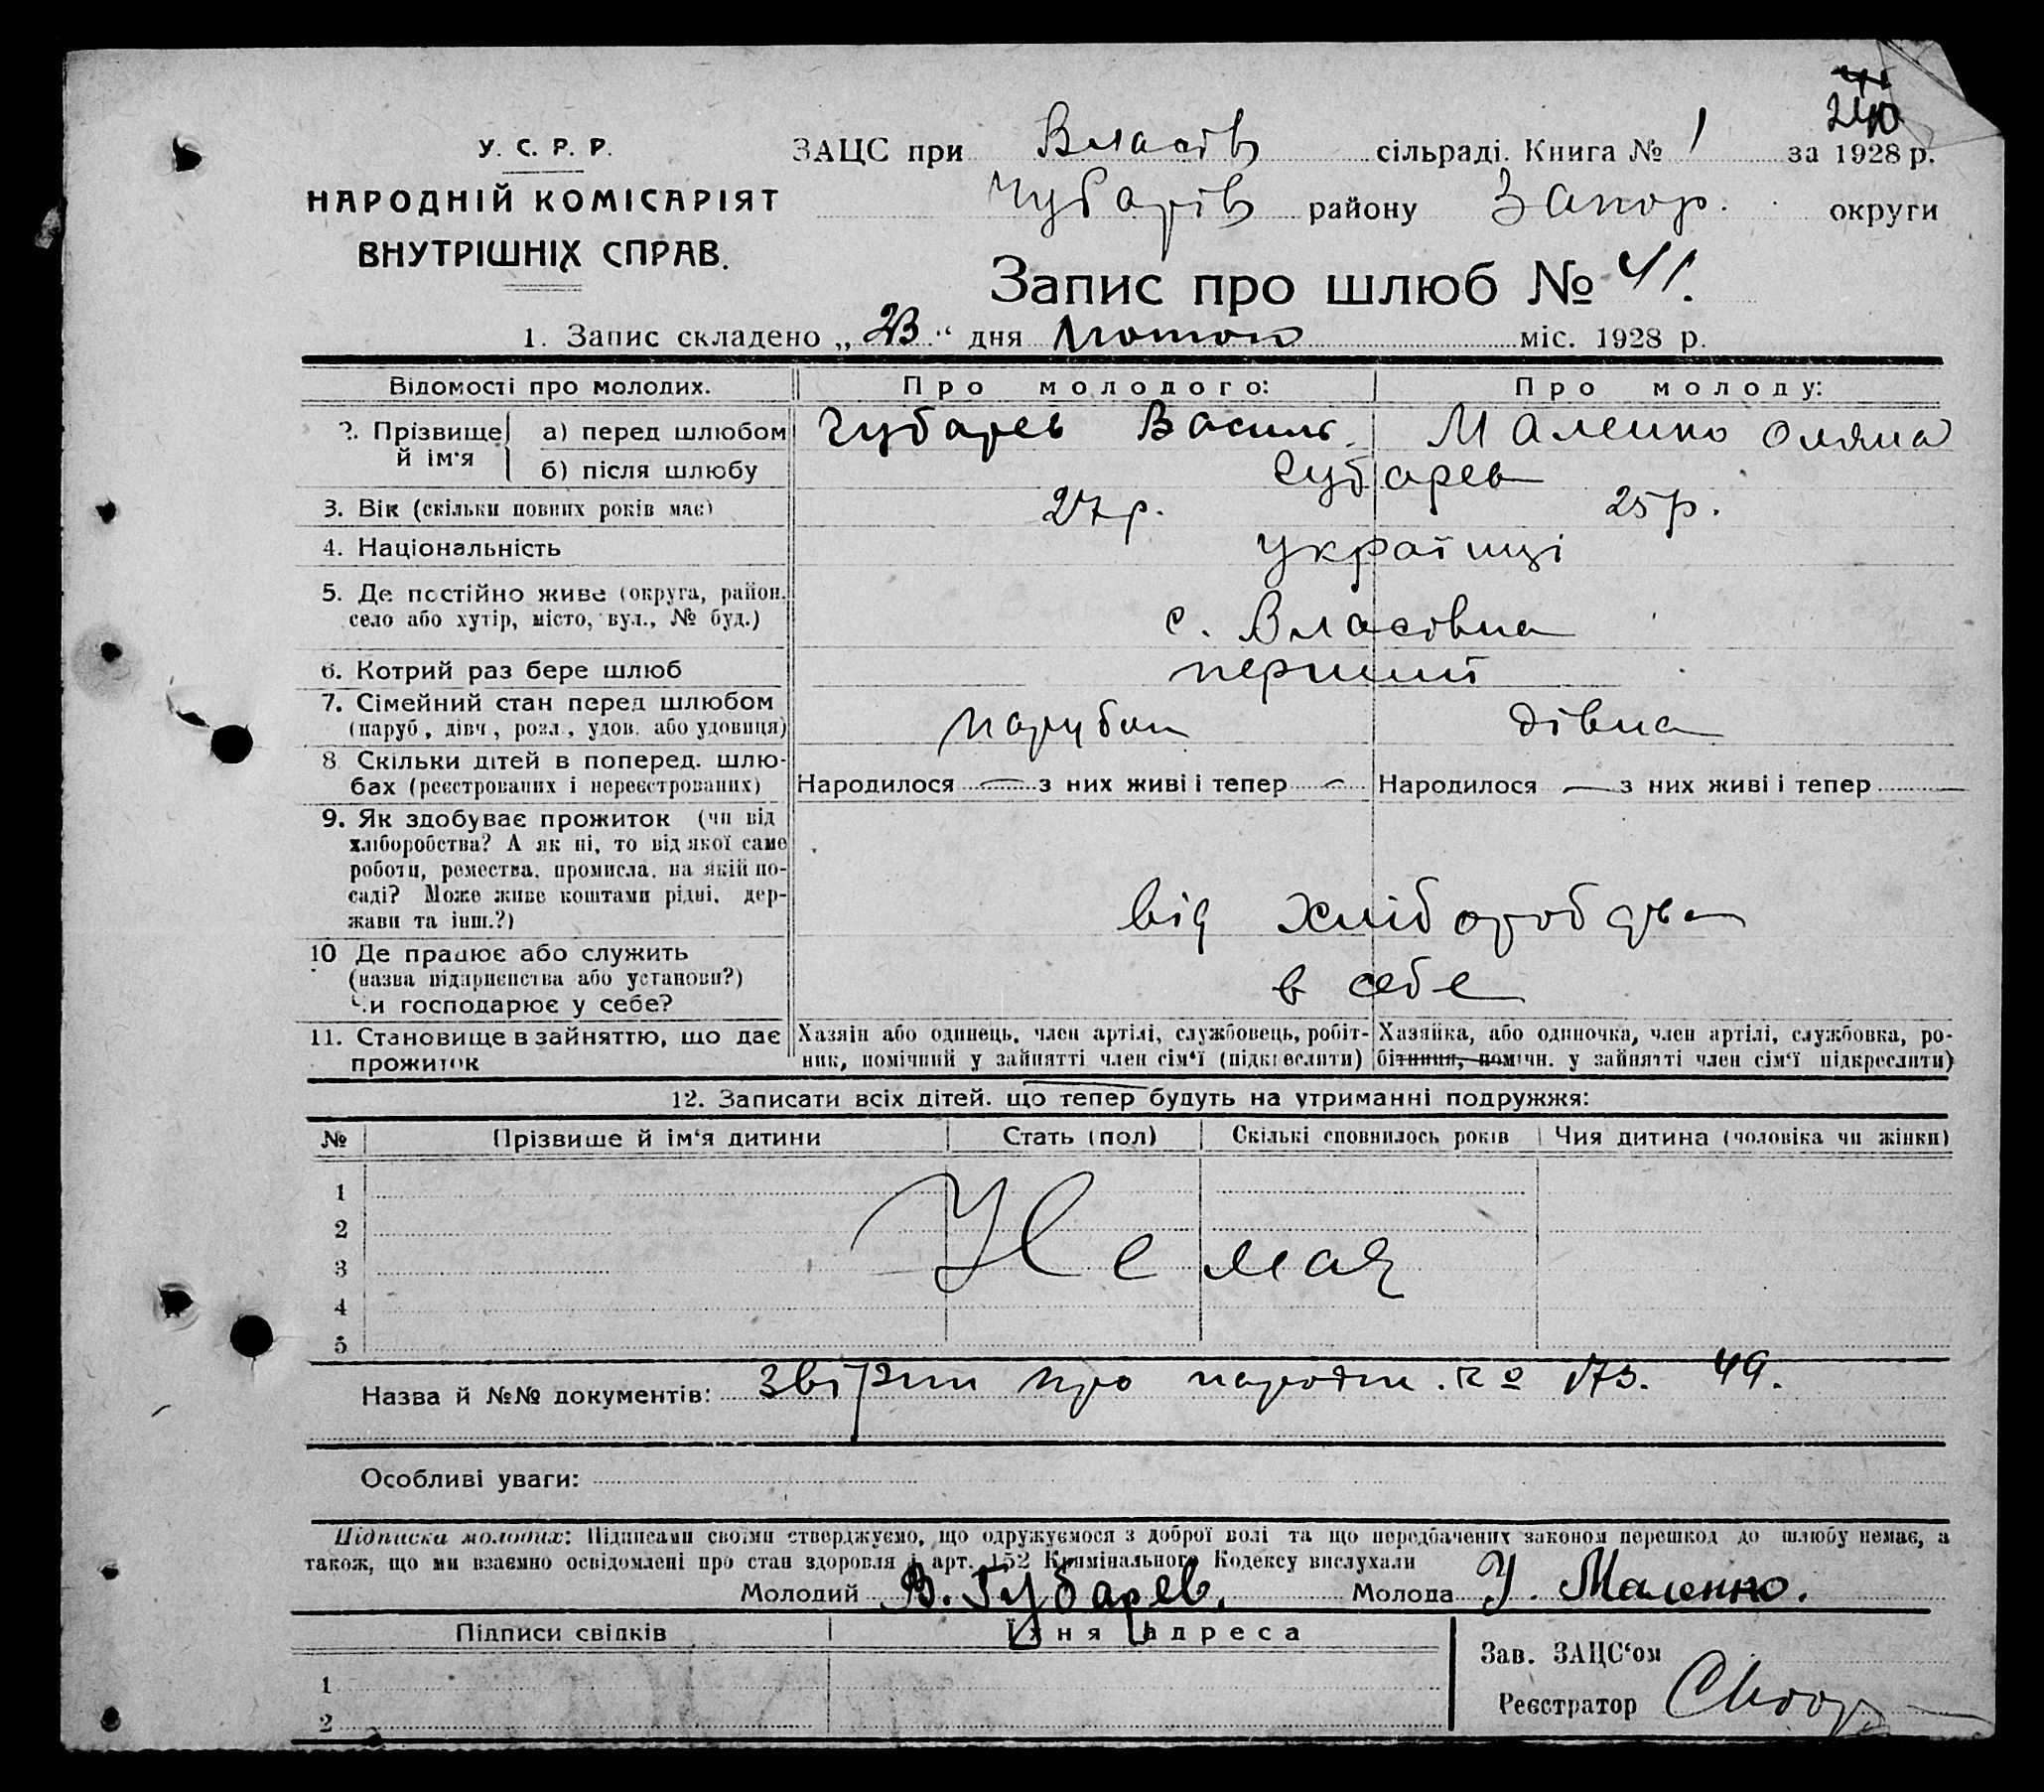 240
У. С. Р. Р.
НАРОДНІЙ КОМІСАРІЯТ
ВНУТРІШНІХ СПРАВ.
ЗАЦС при Власів сільраді. Книга № 1 за 1928 р.
Чубарів району Запор. округи
Запис про шлюб № 41.
1. Запис складено „23“ дня Лютого міс. 1928 р.
Відомості про молодих. Про молодого: Про молоду:
2. Прізвище й ім'я а) перед шлюбом Губарев Василь. Маленко Оляна
б) після шлюбу Губарев
3. Вік (скільки повних років має) 27 р. 25 р.
4. Національність Українці
5. Де постійно живе (округа, район,
село або хутір, місто, вул., № буд.) с. Власівка
6. Котрий раз бере шлюб перший
7. Сімейний стан перед шлюбом
(паруб, дівч, розл., удов. або удовиця) парубок дівка
8 Скільки дітей в поперед. шлю-
бах (реєстрованих і нереєстрованих) Народилося — з них живі і тепер — Народилося — з них живі і тепер —
9. Як здобуває прожиток (чи від
хліборобства? А як ні, то від якої саме
роботи, ремества, промисла, на якій по-
саді? Може живе коштами рідні, дер-
жави та інш.?) від хліборобства
10 Де працює або служить
(назва підприєнства або установи?)
Чи господарює у себе? в себе
11. Становище в зайняттю, що дає
прожиток
Хазяін або одинець, член артілі, службовець, робіт-
ник, помічний у зайнятті член сім'ї (підкреслити)
Хазяйка, або одиночка, член артілі, службовка, ро-
бітниця, помічн. у зайнятті член сім'ї підкреслити)
12. Записати всіх дітей. що тепер будуть на утриманні подружжя:
№ Прізвище й ім'я дитини Стать (пол) Скількі сповнилось років Чия дитина (чоловіка чи жінки)
1
2
3
4
5
Немає
Назва й №№ документів: про №173. 49.
Особливі уваги:
Підписка молодих: Підписами своїми стверджуємо, що одружуємося з доброї волі та що передбачених законом перешкод до шлюбу немає, а
також, що ми взаємно освідомлені про стан здоровля і арт. 152 Кримінального Кодексу вислухали
Молодий В. Губарев. Молода У. Маленко.
Підписи свідків Їхня адреса
1
2
Зав. ЗАЦС'ом
Реєстратор